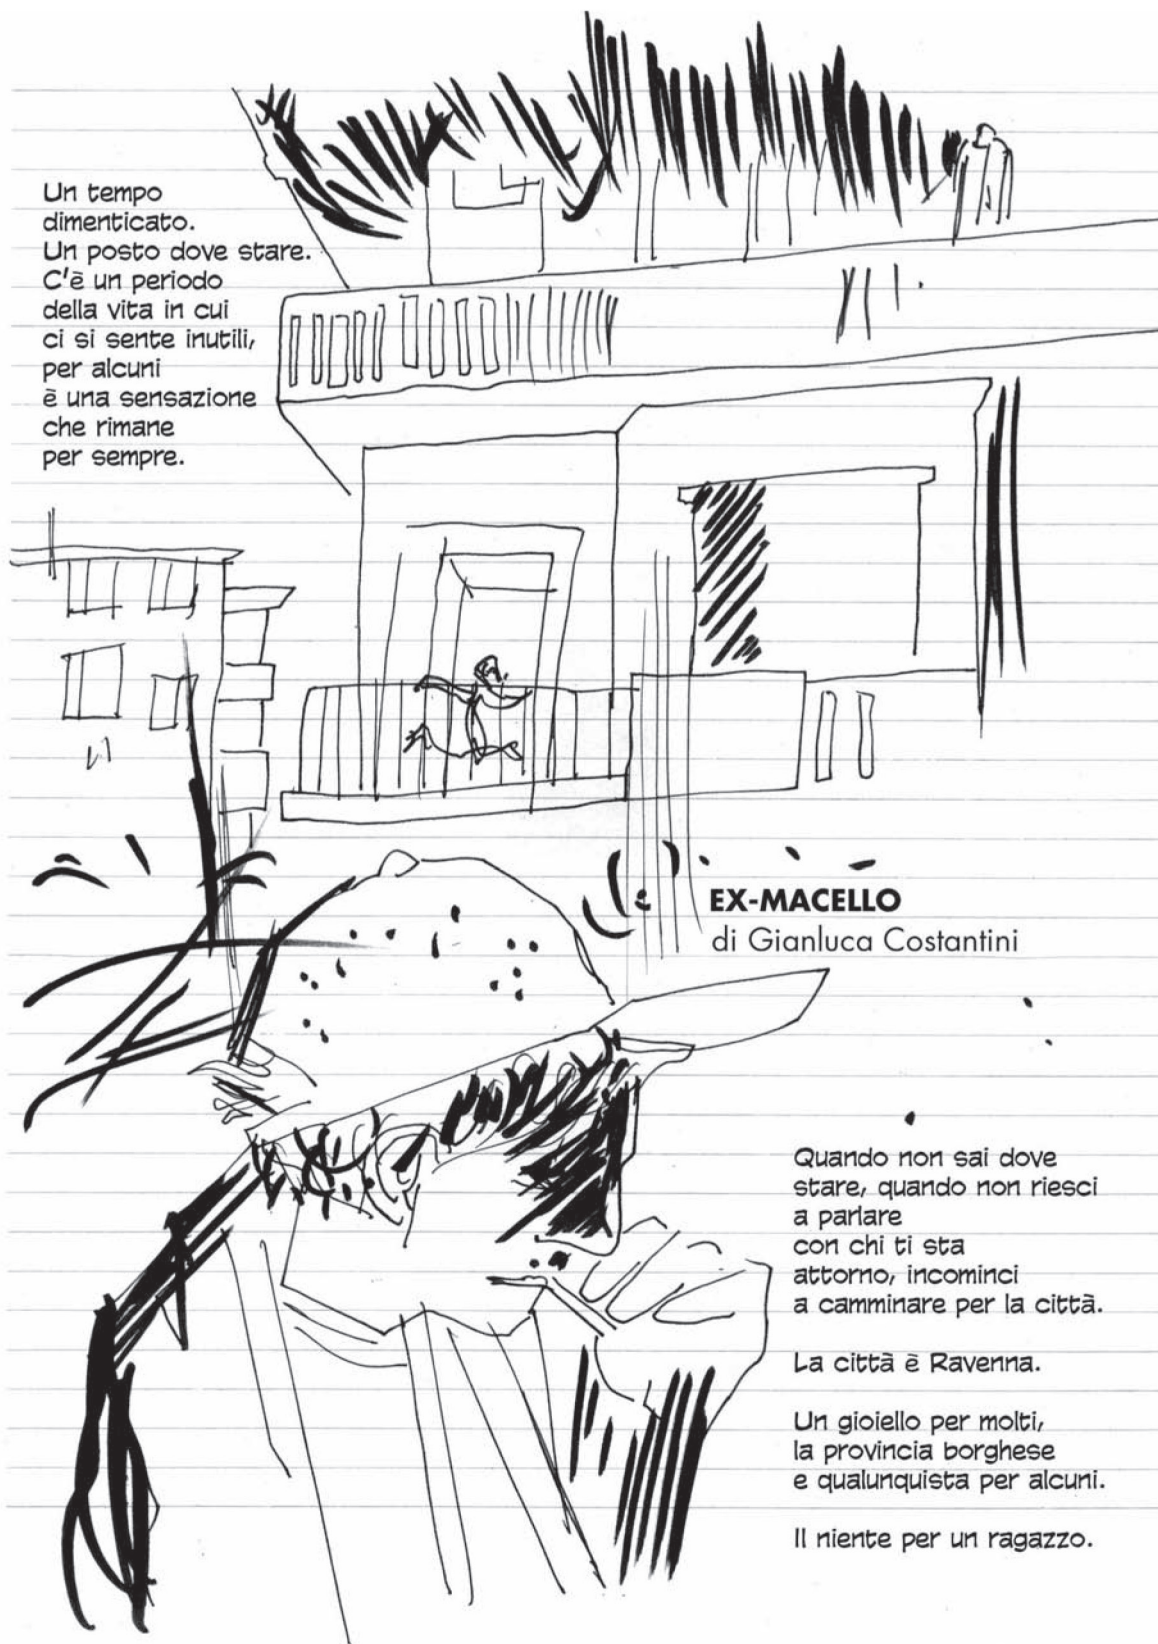 Un tempo
dimenticato.
Un posto dove stare.
C'è un periodo
della vita in cui
ci si sente inutili,
per alcuni
è una sensazione
che rimane
per sempre.
EX-MACELLO
di Gianluca Costantini
Quando non sai dove
stare, quando non riesci
a parlare
con chi ti sta
attorno, incominci
a camminare per la città.
La città è Ravenna.
Un gioiello per molti,
la provincia borghese
e qualunquista per alcuni.
Il niente per un ragazzo.